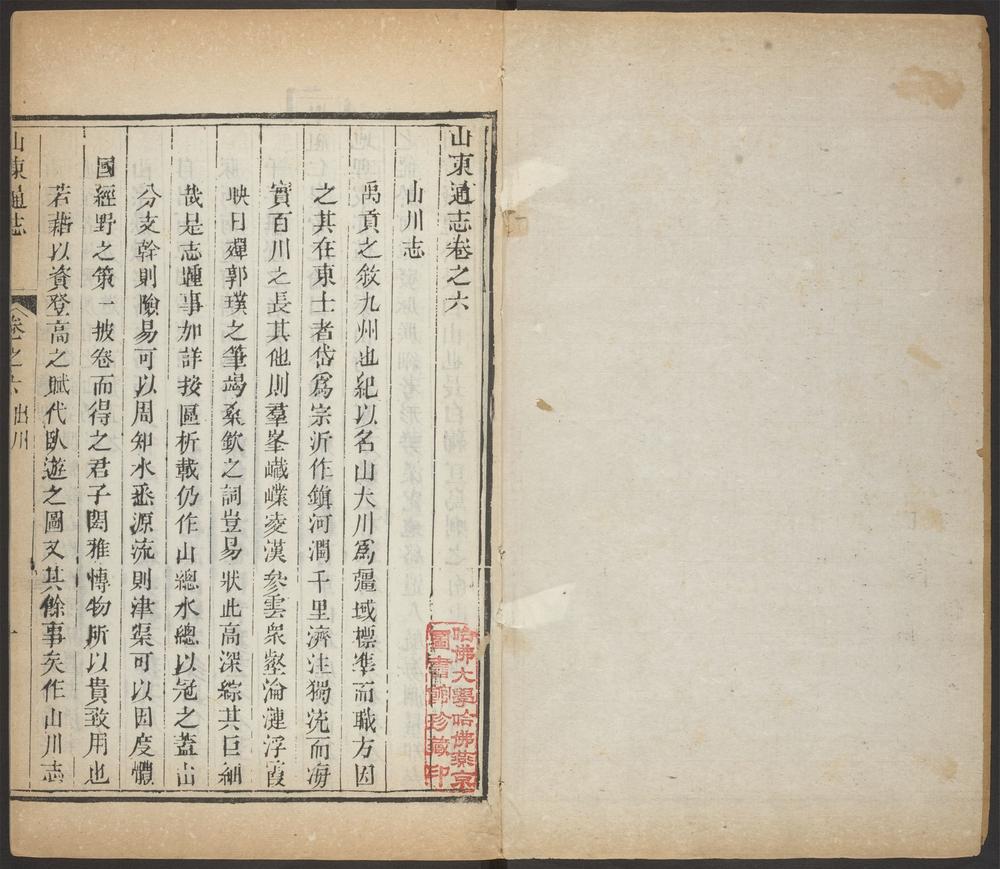 山東通志卷之六
山川志
禹貢之敘九州也紀以名山大川爲疆域標準而職方因
之其在東土者岱爲宗沂作鎮河潤千里濟注獨流而海
實百川之長其他則羣峯巀嶫凌漢參雲衆壑淪漣浮霞
映日殫郭璞之筆竭桑欽之詞豈易狀此高深綜其巨細
哉是志踵事加詳按區析載仍作山總水總以冠之蓋山
分支幹則險易可以周知水埀源流則津渠可以因度體
國經野之策一披卷而得之君子閎雅愽物所以貴致用也
若藉以資登高之賦代臥遊之圖又其餘事矣作山川志
山東通志
卷之六 山川
一
哈佛大學哈佛燕京
圖書館珍藏印